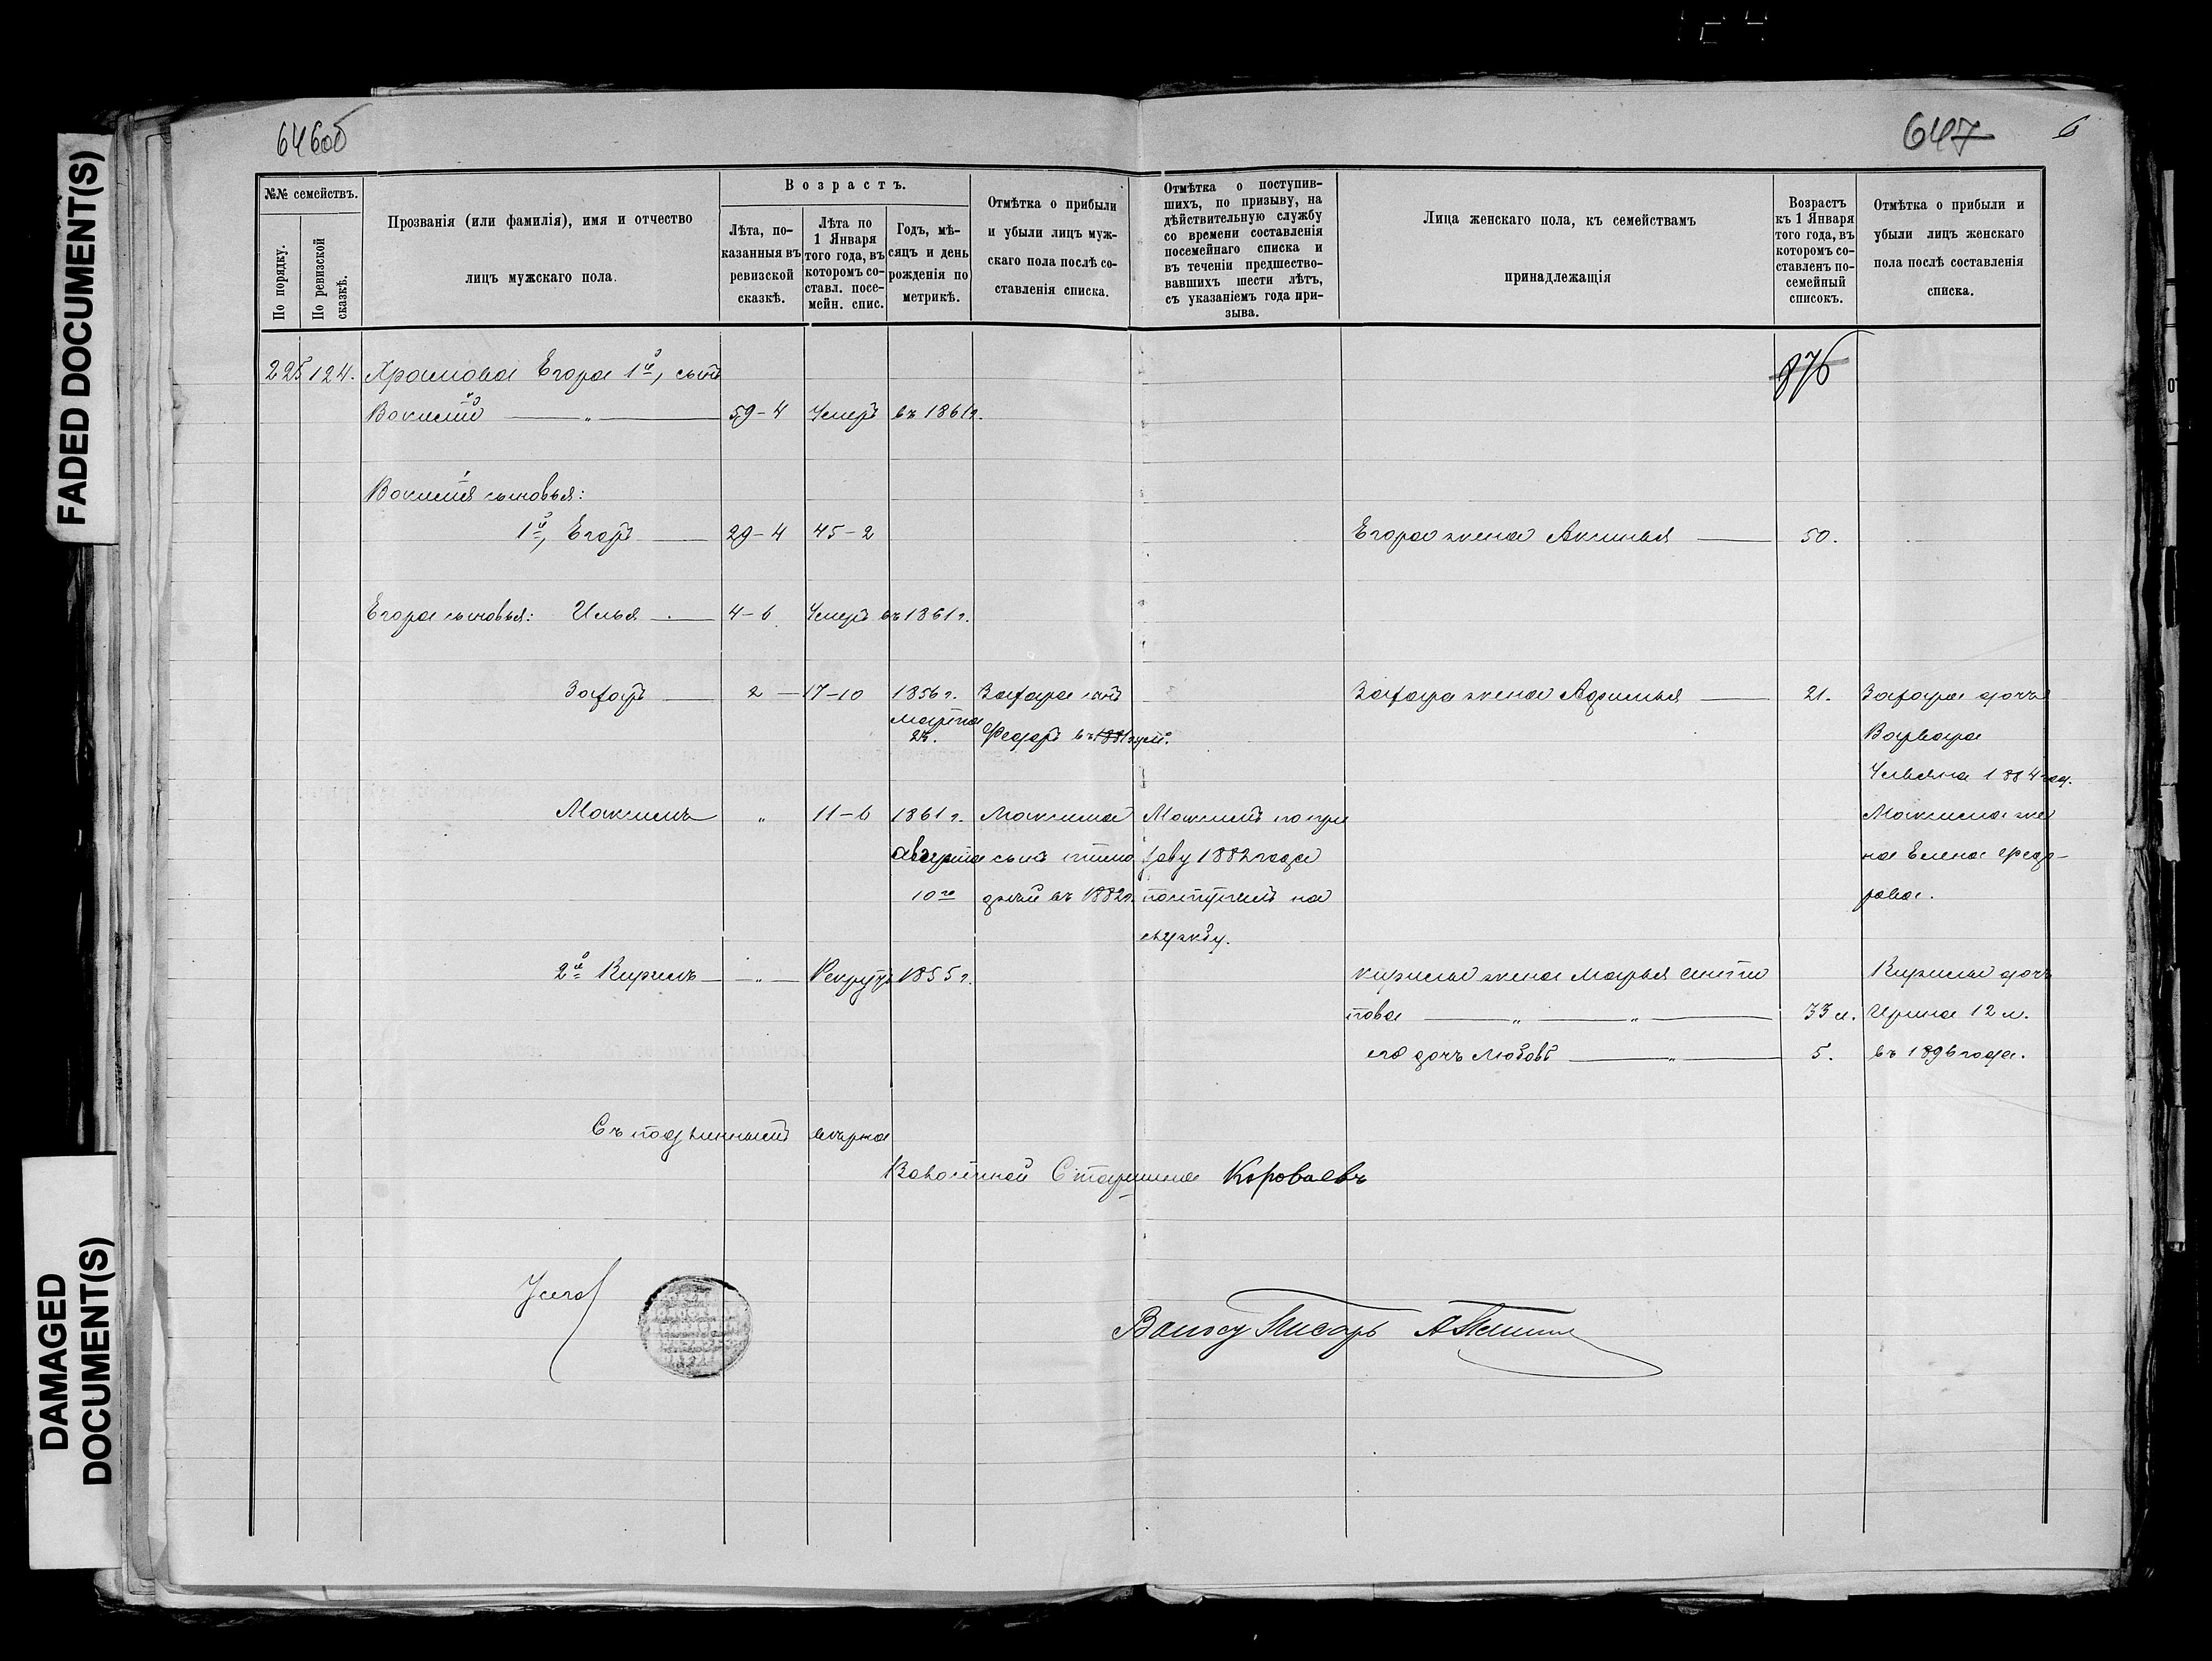 FADED DOCUMENT(S)
DAMAGED DOCUMENT(S)
646об
647
6
№№ семействъ.
По порядку.
По ревизской сказкѣ.
Прозванія (или фамилія), имя и отчество
лицъ мужскаго пола.
Возрастъ.
Лѣта, по-
казанныя въ
ревизской
сказкѣ.
Лѣта по
1 Января
того года, въ
которомъ со-
ставл. посе-
мейн. спис.
Годъ, мѣ-
сяцъ и день
рожденія по
метрикѣ.
Отмѣтка о прибыли
и убыли лицъ муж-
скаго пола послѣ со-
ставленія списка.
Отмѣтка о поступив-
шихъ, по призыву, на
дѣйствительную службу
со времени составленія
посемейнаго списка и
въ теченіи предшество-
вавшихъ шести лѣтъ,
съ указаніемъ года при-
зыва.
Лица женскаго пола, къ семействамъ
принадлежащія
Возрастъ
къ 1 Января
того года, въ
которомъ со-
ставленъ по-
семейный
списокъ.
Отмѣтка о прибыли и
убыли лицъ женскаго
пола послѣ составленія
списка.
876
225 124. Храмова Егора 1й, сынъ
59-4 Умеръ въ 1861г.
сыновья:
1й, Егоръ 29-4 45-2 Егора жена Аксинья 50.
Егора сыновья: Илья 4-6 Умеръ въ 1861г.
Захаръ 2 17-10 1856г. Захара сынъ Захара жена 21. Захара дочь
Марта Федоръ въ 1881 Варвара
24.
Ульяна 1884 год.
Максимъ „ 11-6 1861г. Максима Максимъ по при Максима же
Августа сынъ зову 1882 года на Елена Федо-
10го въ 1882г. поступилъ на рова.
службу.
2й Кирилъ „ Рекрутъ 1855г. Кирилы жена Марья Кирилы дочь
това „ „ 33 л. Ирина 12 л.
его дочь Любовь „ 5. въ 1896 года.
Съ подлиннымъ вѣрно
Волостной Старшина Короваевъ
Волосу Писарь